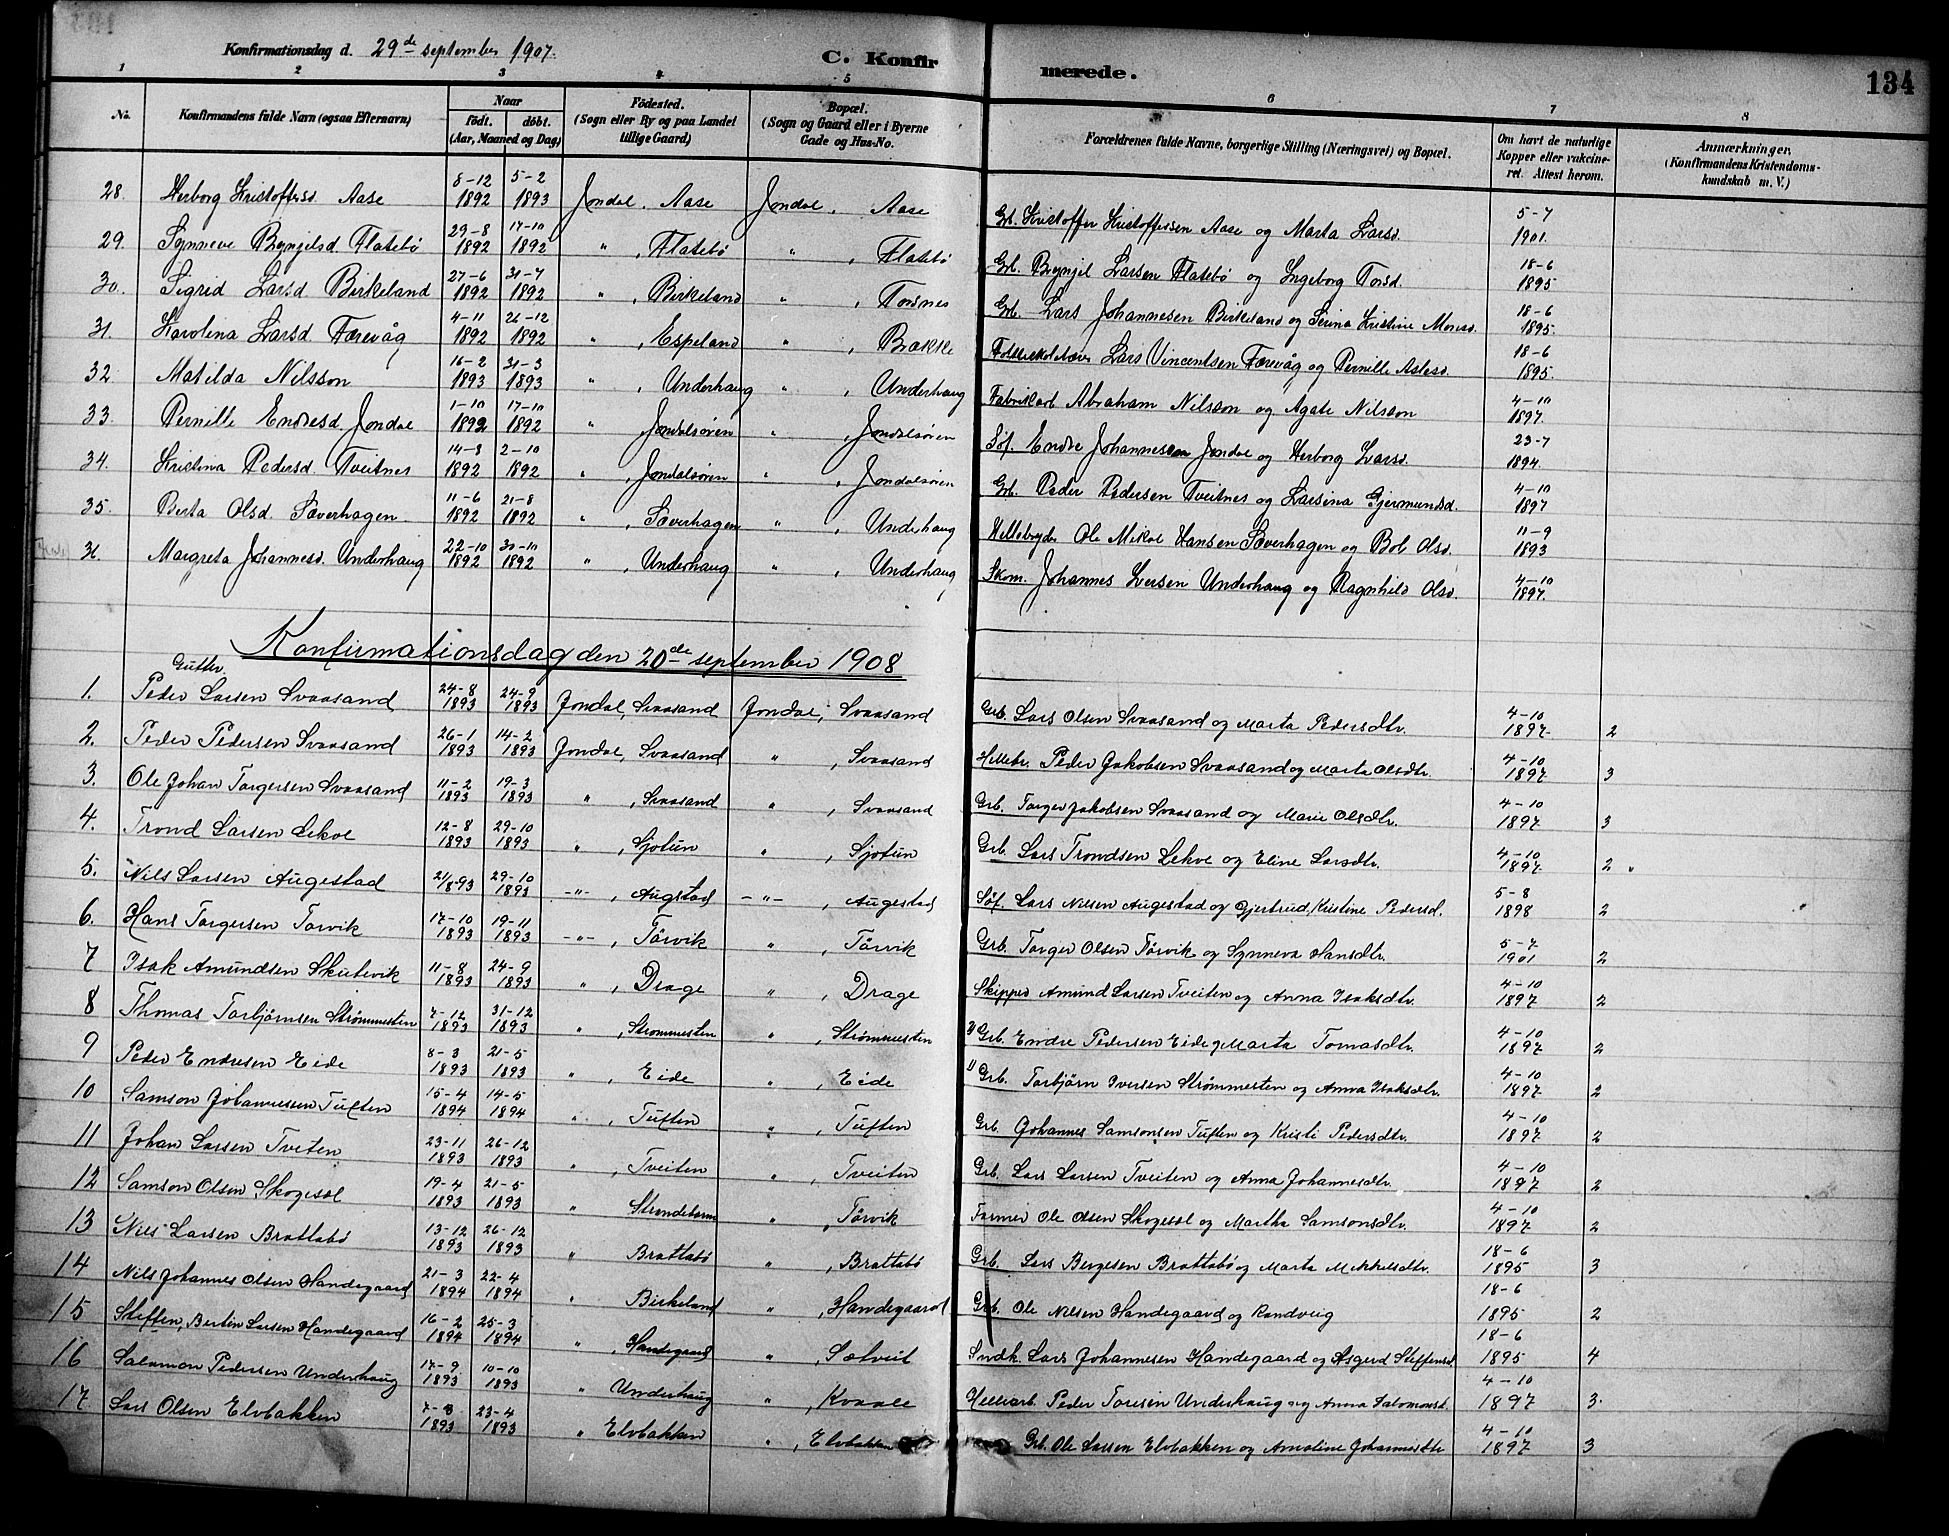 Konfirmationsdag d. 29de september 1907.
C. Konfirmerede.
134
1 2 3 4 5 6 7 8
No. | Konfirmandens fulde Navn (ogsaa Efternavn) | Naar født. døbt. (Aar, Maaned og Dag) | Födested. (Sogn eller By og paa Landet tillige Gaard) | Bopæl. (Sogn og Gaard eller i Byerne Gade og Hus-No. | Forældrenes fulde Navne, borgerlige Stilling (Næringsvei) og Bopæl. | Om havt de naturlige Kopper eller vakcineret. Attest herom. | Anmærkninger. (Konfirmandens Kristendomskundskab m. V.)
28. Herborg Kristoffersd. Aase | 8-12 1892 | 5-2 1893 | Jondal, Aase | Jondal, Aase | Grb. Kristoffer Kristoffersen Aase og Marta Larsd. | 5-7 1901.
29. Synneve Brynjelsd Flatebö | 29-8 1892 | 17-10 1892 | " , Flatebö | " , Flatebö | Grb. Brynjel Larsen Flatebö og Ingeborg Torsd. | 18-6 1895
30. Sigrid Larsd Birkeland | 27-6 1892 | 31-7 1892 | " , Birkeland | " , Torsnes | Grb. Lars Johannesen Birkeland og Serina Kristine Monsd. | 18-6 1895.
31. Karolina Larsd. Færevåg | 4-11 1892 | 26-12 1892 | " , Espeland | " , Brække | Lars Vincentsen Færevåg og Pernille Aslesd. | 18-6 1895.
32. Matilda Nilsson | 16-2 1893 | 31-3 1893 | " , Underhaug | " , Underhaug | Fabrikarb Abraham Nilsson og Agate Nilsson | 4-10 1897.
33. Pernille Endresd. Jondal | 1-10 1892 | 17-10 1892 | " , Jondalsören | " , Jondalsören | Söf. Endre Johannesen Jondal og Herborg Larsd. | 23-7 1894.
34. Kristina Pedersd. Tveitnes | 14-8 1892 | 2-10 1892 | " , Jondalsören | " , Jondalsören | Grb. Peder Pedersen Tveitnes og Larsina Gjermundsd. | 4-10 1897
35. Berta Olsd. Sæverhagen | 11-6 1892 | 21-8 1892 | " , Sæverhagen | " , Underhaug | Hellebryder Ole Mikal Hansen Sæverhagen og Bol. Olsd. | 11-9 1893
36. Margreta Johannesd. Underhaug | 22-10 1892 | 30-10 1892 | " , Underhaug | " , Underhaug | Skom. Johannes Iversen Underhaug og Ragnhild Olsd. | 4-10 1897.
Konfirmationsdag den 20de september 1908
Gutter
1. Peder Larsen Svaasand | 24-8 1893 | 24-9 1893 | Jondal, Svaasand | Jondal, Svaasand | Grb. Lars Olsen Svaasand og Marta Pedersdtr. | 4-10 1897. | 2
2. Peder Pedersen Svaasand | 26-1 1893 | 14-2 1893 | Jondal, Svaasand | " , Svaasand | Hellebr. Peder Jakobsen Svaasand og Marta Olsdtr. | 4-10 1897 | 3
3. Ole Johan Torgersen Svaasand | 11-2 1893 | 19-3 1893 | " , Svaasand | " , Svaasand | Grb. Torger Jakobsen Svaasand og Marie Olsdtr. | 4-10 1897 | 3
4. Trond Larsen Lekve | 12-8 1893 | 29-10 1893 | " , Sjotun | " , Sjotun | Grb. Lars Trondsen Lekve og Eline Larsdtr. | 4-10 1897. | 2 "
5. Nils Larsen Augestad | 21/8-93 | 29-10 1893 | -"- , Augstad | -"- , Augestad | Söf. Lars Nilsen Augestad og Gjertrud Kristine Pedersd. | 5-8 1898 | 2
6. Hans Torgersen Torvik | 17-10 1893 | 19-11 1893 | -"- , Törvik | " , Törvik | Grb. Torger Olsen Törvik og Synneva Hansdtr. | 5-7 1901 | 2
7 Isak Amundsen Skutevik | 11-8 1893 | 24-9 1893 | " , Drage | " , Drage | Skipper Amund Larsen Tveiten og Anna Isaksdtr. | 4-10 1897 | 2
8 Thomas Torbjörnsen Strömmesten | 7-12 1893 | 31-12 1893 | " , Strommesten | " , Strömmesten | 2) Grb. Endre Pedersen Eide og Marta Tomasdtr. | 4-10 1897 | 2
9 Peder Endresen Eide | 8-3 1893 | 21-5 1893 | " , Eide | " , Eide | 1) Grb. Torbjörn Iversen Strömmesten og Anna Isaksdtr. | 4-10 1897. | 2
10 Samson Johannesen Tuften | 15-4 1894 | 14-5 1894 | " , Tuften | " , Tuften | Grb. Johannes Samsonsen Tuften og Kristi Pedersdtr. | 4-10 1897 | 2
11 Johan Larsen Tveten | 23-11 1893 | 26-12 1893 | " , Tveiten | " , Tveiten | Grb. Lars Larsen Tveiten og Anna Johannesdtr. | 4-10 1897 | 2
12 Samson Olsen Skogesæl | 19-4 1893 | 21-5 1893 | " Strandebarm | " , Törvik | Farmer Ole Olsen Skogesæl og Martha Samsonsdtr. | 4-10 1897 | 2
13 Nils Larsen Brattabö | 13-12 1893 | 26-12 1893 | " Brattabö | " , Brattabö | Grb. Lars Bergesen Brattabö og Marta Mikkelsdtr. | 18-6 1895 | 3
14 Nils Johannes Olsen Handegaard | 21-3 1894 | 22-4 1894 | " Birkeland | " , Handegaard | Grb. Ole Nilsen Handegaard og Randveig | 18-6 1895 | 2
15 Steffen, Bertin Larsen Handegaard | 16-2 1894 | 25-3 1894 | " , Handegaard | " , Sætveit | Sndk. Lars Johannesen Handegaard og Asgerd Steffensd | 18-6 1895 | 4
16 Salamon Pedersen Underhaug | 17-9 1893 | 10-10 1893 | " Underhaug | " , Kvaale | Hellearb. Peder Toresen Underhaug og Anna Salomonsd. | 4-10 1897 | 3.
17 Lars Olsen Elvbakken | 7-3 1893 | 23-4 1893 | " Elvbakken | " , Elvbakken | Grb. Ole Larsen Elvbakken og Johannesdtr | 4-10 1897 | 3